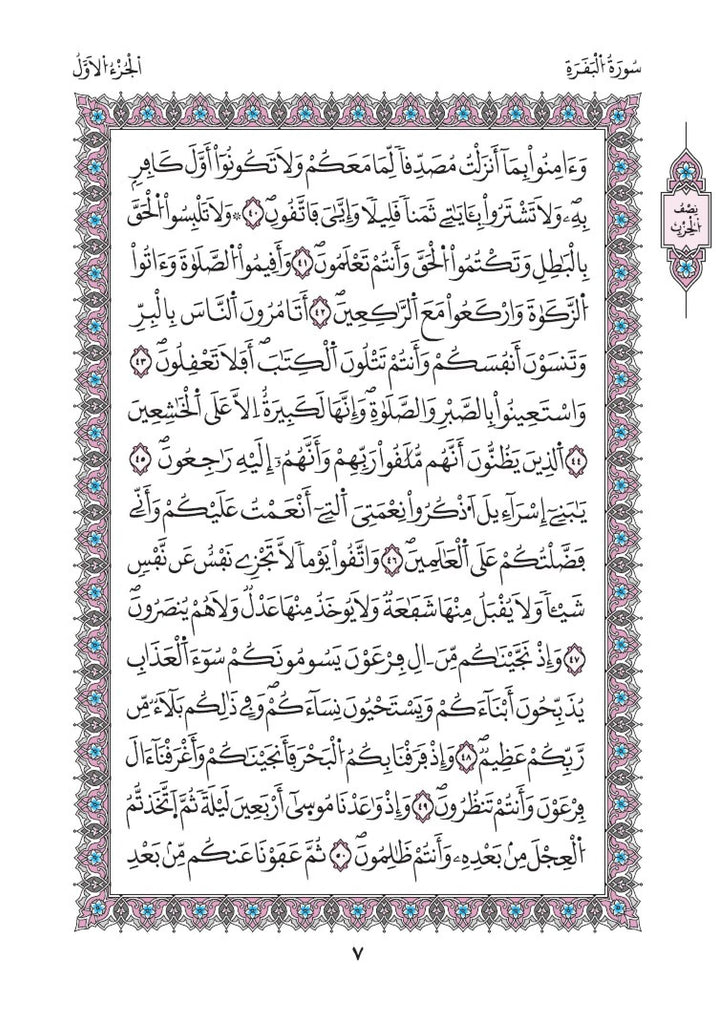 سُورَةُ اُ۬لْبَقَرَةِ
اُ۬لْجُزْءُ اُ۬لَاوَّلُ
نِصْفُ
اُ۬لْحِزْبِ
وَءَامِنُواْ بِمَآ أَنزَلْتُ مُصَدِّقاٗ لِّمَا مَعَكُمْ وَلَا تَكُونُوٓاْ أَوَّلَ كَافِرِۢ
بِهِۦۖ وَلَا تَشْتَرُواْ بِـَٔايَٰتِے ثَمَناٗ قَلِيلاٗ وَإِيَّٰيَ فَاتَّقُونِۖ ٤٠ ۞ وَلَا تَلْبِسُواْ اُ۬لْحَقَّ
بِالْبَٰطِلِ وَتَكْتُمُواْ اُ۬لْحَقَّ وَأَنتُمْ تَعْلَمُونَۖ ٤١ وَأَقِيمُواْ اُ۬لصَّلَوٰةَ وَءَاتُواْ
اُ۬لزَّكَوٰةَ وَارْكَعُواْ مَعَ اَ۬لرَّٰكِعِينَۖ ٤٢ أَتَامُرُونَ اَ۬لنَّاسَ بِالْبِرِّ
وَتَنسَوْنَ أَنفُسَكُمْ وَأَنتُمْ تَتْلُونَ اَ۬لْكِتَٰبَۖ أَفَلَا تَعْقِلُونَۖ ٤٣
وَاسْتَعِينُواْ بِالصَّبْرِ وَالصَّلَوٰةِۖ وَإِنَّهَا لَكَبِيرَةٌ اِلَّا عَلَى اَ۬لْخَٰشِعِينَ
٤٤ اَ۬لذِينَ يَظُنُّونَ أَنَّهُم مُّلَٰقُواْ رَبِّهِمْ وَأَنَّهُمُۥٓ إِلَيْهِ رَٰجِعُونَۖ ٤٥
يَٰبَنِےٓ إِسْرَآءِيلَ اَ۟ذْكُرُواْ نِعْمَتِيَ اَ۬لتِےٓ أَنْعَمْتُ عَلَيْكُمْ وَأَنِّے
فَضَّلْتُكُمْ عَلَى اَ۬لْعَٰلَمِينَۖ ٤٦ وَاتَّقُواْ يَوْماٗ لَّا تَجْزِے نَفْسٌ عَن نَّفْسٖ
شَيْـٔاٗ وَلَا يُقْبَلُ مِنْهَا شَفَٰعَةٞ وَلَا يُوخَذُ مِنْهَا عَدْلٞ وَلَا هُمْ يُنصَرُونَۖ
٤٧ وَإِذْ نَجَّيْنَٰكُم مِّنَ اٰلِ فِرْعَوْنَ يَسُومُونَكُمْ سُوٓءَ اَ۬لْعَذَابِ
يُذَبِّحُونَ أَبْنَآءَكُمْ وَيَسْتَحْيُونَ نِسَآءَكُمْۖ وَفِے ذَٰلِكُم بَلَآءٞ مِّن
رَّبِّكُمْ عَظِيمٞۖ ٤٨ وَإِذْ فَرَقْنَا بِكُمُ اُ۬لْبَحْرَ فَأَنجَيْنَٰكُمْ وَأَغْرَقْنَآ ءَالَ
فِرْعَوْنَ وَأَنتُمْ تَنظُرُونَۖ ٤٩ وَإِذْ وَٰعَدْنَا مُوسَيٰٓ أَرْبَعِينَ لَيْلَةٗ ثُمَّ اَ۪تَّخَذتُّمُ
اُ۬لْعِجْلَ مِنۢ بَعْدِهِۦ وَأَنتُمْ ظَٰلِمُونَۖ ٥٠ ثُمَّ عَفَوْنَا عَنكُم مِّنۢ بَعْدِ
٧